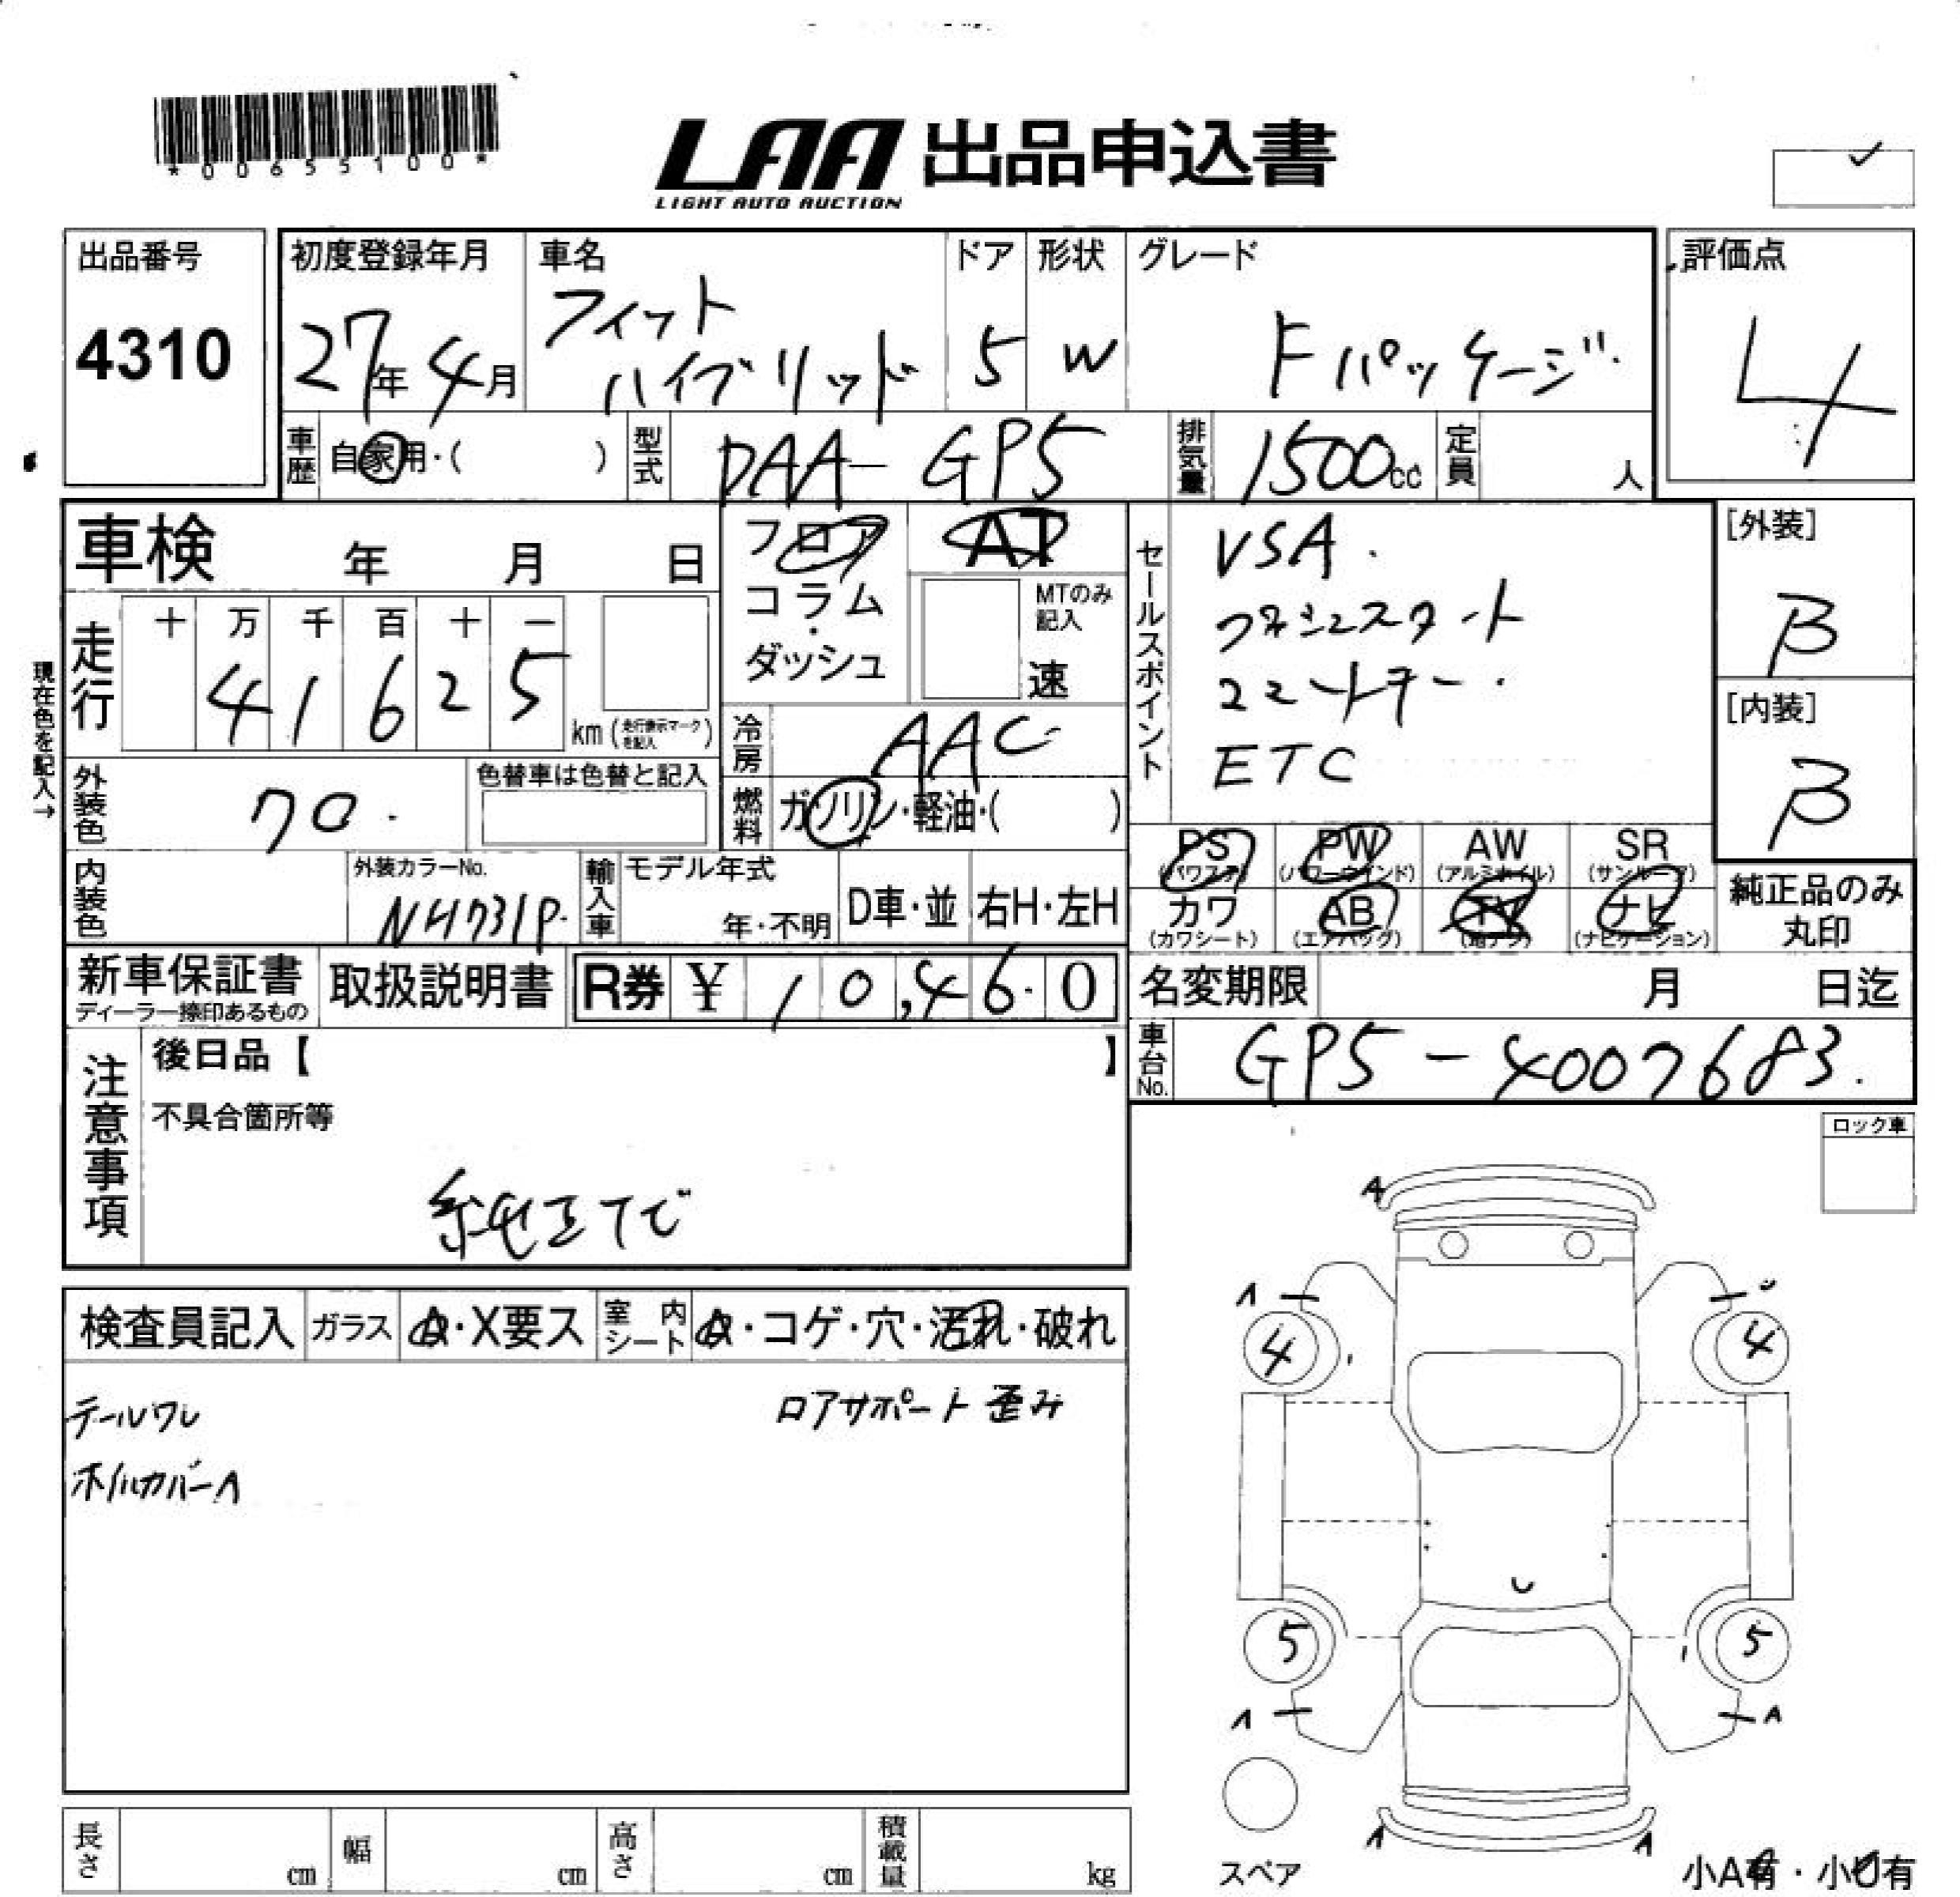 *00655100*
LAA 出品申込書
LIGHT AUTO AUCTION
出品番号
4310
初度登録年月
27年 4月
車名
フィット
ハイブリッド
ドア
5
形状
W
グレード
Fパッケージ
評価点
4
車歴
自家用・( )
型式
DAA-GP5
排気量
1500cc
定員
人
車検 年 月 日
フロア
コラム
・
ダッシュ
AT
MTのみ
記入
速
セールスポイント
VSA.
プッシュスタート
スマートキー.
ETC
[外装]
B
[内装]
B
現在色を記入→
走行
十 万 千 百 十 一
4 1 6 2 5
km (走行表示マークを記入)
冷房
AAC
燃料
ガソリン・軽油・( )
外装色
クロ.
色替車は色替と記入
内装色
外装カラーNo.
NH731P.
輸入車
モデル年式
年・不明
D車・並
右H・左H
PS
(パワステ)
PW
(パワーウインド)
AW
(アルミホイル)
SR
(サンルーフ)
カワ
(カワシート)
AB
(エアバッグ)
TV
(地デジ)
ナビ
(ナビゲーション)
純正品のみ
丸印
新車保証書
ディーラー捺印あるもの
取扱説明書
R券 ¥ 10,460
名変期限 月 日迄
車台No.
GP5-4007683.
注意事項
後日品【 】
不具合箇所等
純正ナビ
ロック車
検査員記入
ガラス
A・X要ス
室内
シート
A・コゲ・穴・汚れ・破れ
テールワレ
ロアサポート歪み
ホイルカバーA
A
A
4
4
U
5
5
A
A
A
A
スペア
小A有・小U有
長さ cm
幅 cm
高さ cm
積載量 kg